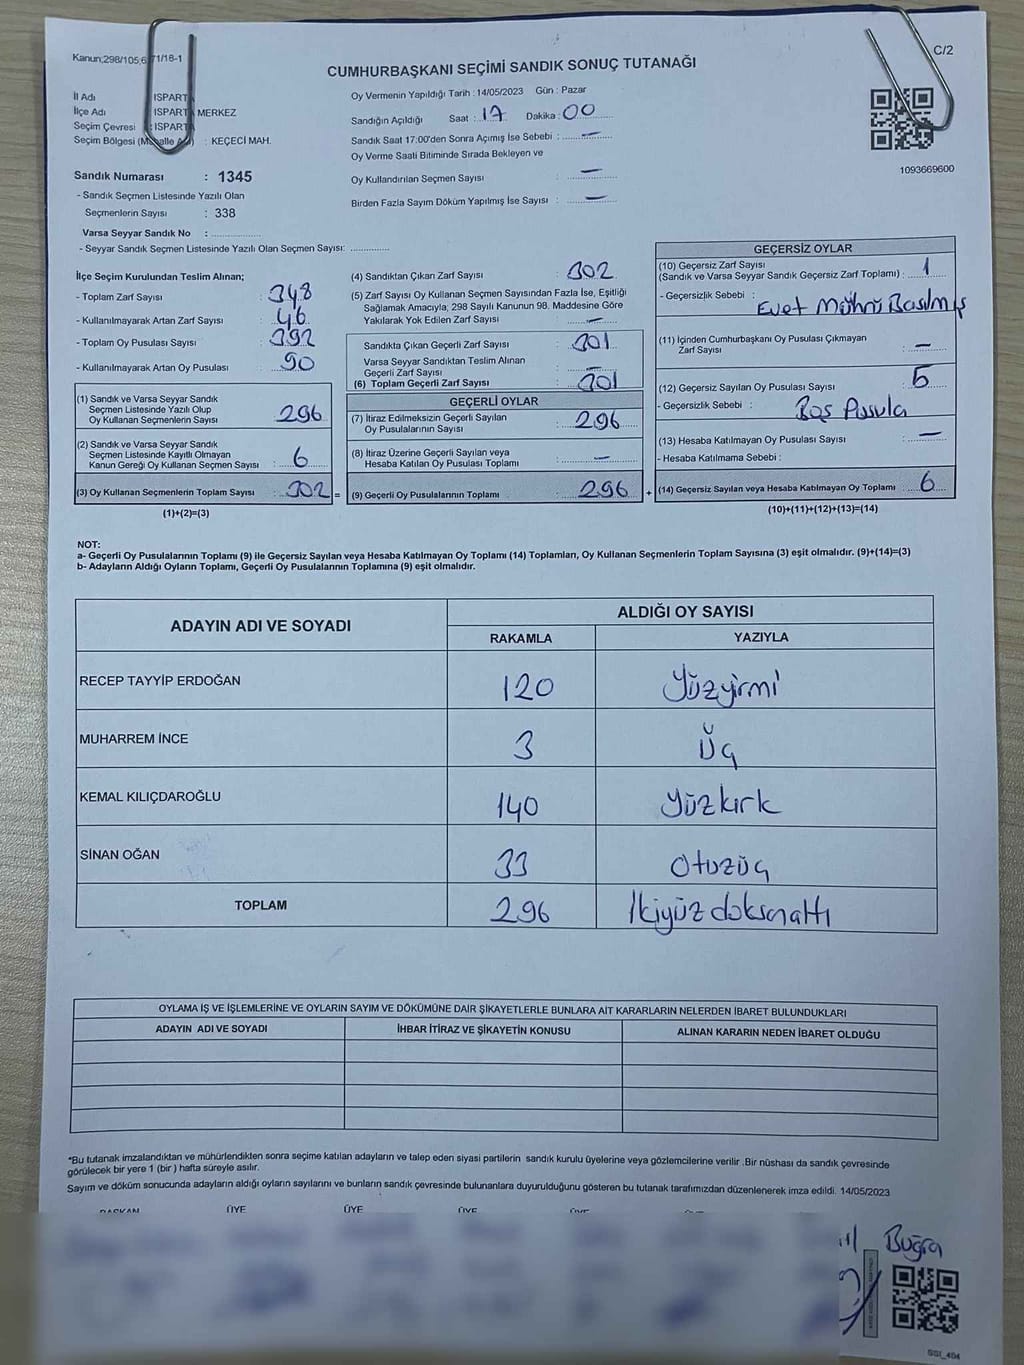 Kanun;298/105;6 71/18-1
C/2
CUMHURBAŞKANI SEÇİMİ SANDIK SONUÇ TUTANAĞI
İl Adı ISPARTA
İlçe Adı ISPARTA MERKEZ
Seçim Çevresi : ISPARTA
Seçim Bölgesi (Mahalle Adı) : KEÇECİ MAH.
Sandık Numarası : 1345
- Sandık Seçmen Listesinde Yazılı Olan
Seçmenlerin Sayısı : 338
Varsa Seyyar Sandık No : ..................
- Seyyar Sandık Seçmen Listesinde Yazılı Olan Seçmen Sayısı: .............
Oy Vermenin Yapıldığı Tarih : 14/05/2023 Gün : Pazar
Sandığın Açıldığı Saat : 17 Dakika : 00
Sandık Saat 17:00'den Sonra Açımış İse Sebebi : —
Oy Verme Saati Bitiminde Sırada Bekleyen ve
Oy Kullandırılan Seçmen Sayısı : —
Birden Fazla Sayım Döküm Yapılmış İse Sayısı : —
1093669600
İlçe Seçim Kurulundan Teslim Alınan;
- Toplam Zarf Sayısı : 348
- Kullanılmayarak Artan Zarf Sayısı : 46
- Toplam Oy Pusulası Sayısı : 392
- Kullanılmayarak Artan Oy Pusulası : 90
(1) Sandık ve Varsa Seyyar Sandık
Seçmen Listesinde Yazılı Olup
Oy Kullanan Seçmenlerin Sayısı : 296
(2) Sandık ve Varsa Seyyar Sandık
Seçmen Listesinde Kayıtlı Olmayan
Kanun Gereği Oy Kullanan Seçmen Sayısı : 6
(3) Oy Kullanan Seçmenlerin Toplam Sayısı : 302 =
(1)+(2)=(3)
(4) Sandıktan Çıkan Zarf Sayısı : 302
(5) Zarf Sayısı Oy Kullanan Seçmen Sayısından Fazla İse, Eşitliği
Sağlamak Amacıyla, 298 Sayılı Kanunun 98. Maddesine Göre
Yakılarak Yok Edilen Zarf Sayısı : —
Sandıkta Çıkan Geçerli Zarf Sayısı : 301
Varsa Seyyar Sandıktan Teslim Alınan
Geçerli Zarf Sayısı : —
(6) Toplam Geçerli Zarf Sayısı : 301
GEÇERLİ OYLAR
(7) İtiraz Edilmeksizin Geçerli Sayılan
Oy Pusulalarının Sayısı : 296
(8) İtiraz Üzerine Geçerli Sayılan veya
Hesaba Katılan Oy Pusulası Toplamı : —
(9) Geçerli Oy Pusulalarının Toplamı : 296 +
GEÇERSİZ OYLAR
(10) Geçersiz Zarf Sayısı
(Sandık ve Varsa Seyyar Sandık Geçersiz Zarf Toplamı) : 1
- Geçersizlik Sebebi : Evet Mührü Basılmış
(11) İçinden Cumhurbaşkanı Oy Pusulası Çıkmayan
Zarf Sayısı : —
(12) Geçersiz Sayılan Oy Pusulası Sayısı : 5
- Geçersizlik Sebebi : Boş Pusula
(13) Hesaba Katılmayan Oy Pusulası Sayısı : —
- Hesaba Katılmama Sebebi :
(14) Geçersiz Sayılan veya Hesaba Katılmayan Oy Toplamı : 6
(10)+(11)+(12)+(13)=(14)
NOT:
a- Geçerli Oy Pusulalarının Toplamı (9) ile Geçersiz Sayılan veya Hesaba Katılmayan Oy Toplamı (14) Toplamları, Oy Kullanan Seçmenlerin Toplam Sayısına (3) eşit olmalıdır. (9)+(14)=(3)
b- Adayların Aldığı Oyların Toplamı, Geçerli Oy Pusulalarının Toplamına (9) eşit olmalıdır.
ADAYIN ADI VE SOYADI ALDIĞI OY SAYISI
RAKAMLA YAZIYLA
RECEP TAYYİP ERDOĞAN 120 Yüzyirmi
MUHARREM İNCE 3 Üç
KEMAL KILIÇDAROĞLU 140 Yüzkırk
SİNAN OĞAN 33 Otuzüç
TOPLAM 296 İkiyüzdoksanaltı
OYLAMA İŞ VE İŞLEMLERİNE VE OYLARIN SAYIM VE DÖKÜMÜNE DAİR ŞİKAYETLERLE BUNLARA AİT KARARLARIN NELERDEN İBARET BULUNDUKLARI
ADAYIN ADI VE SOYADI İHBAR İTİRAZ VE ŞİKAYETİN KONUSU ALINAN KARARIN NEDEN İBARET OLDUĞU
*Bu tutanak imzalandıktan ve mühürlendikten sonra seçime katılan adayların ve talep eden siyasi partilerin sandık kurulu üyelerine veya gözlemcilerine verilir .Bir nüshası da sandık çevresinde
görülecek bir yere 1 (bir ) hafta süreyle asılır.
Sayım ve döküm sonucunda adayların aldığı oyların sayılarını ve bunların sandık çevresinde bulunanlara duyurulduğunu gösteren bu tutanak tarafımızdan düzenlenerek imza edildi. 14/05/2023
BAŞKAN ÜYE ÜYE ÜYE ÜYE
Buğra
SSI_404